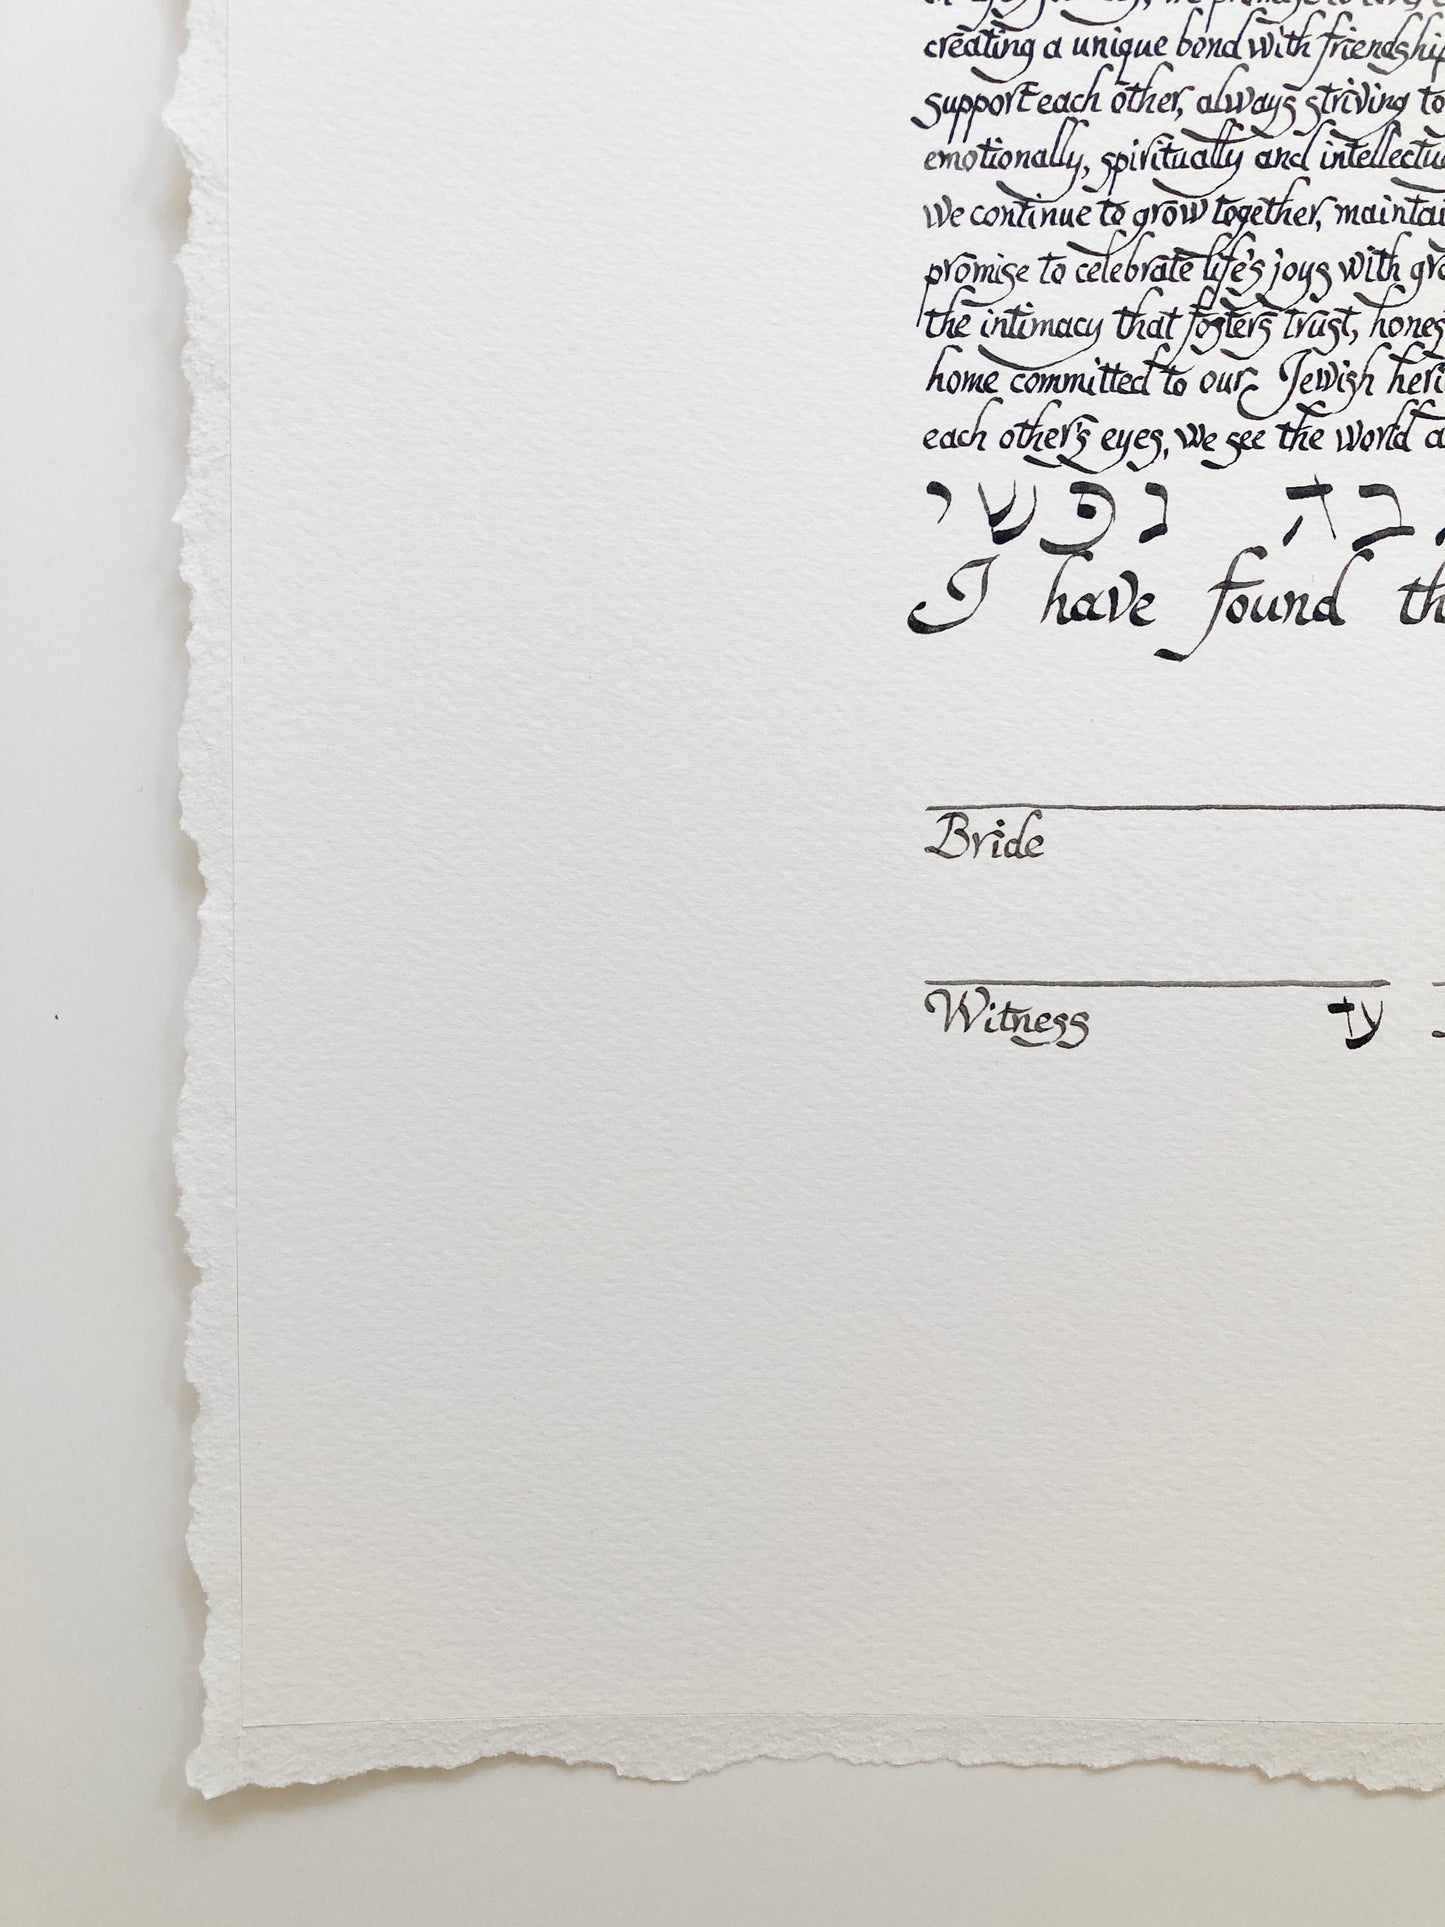 creating a unique bond with friendship
support each other, always striving to
emotionally, spiritually and intellectu
We continue to grow together, maintai
promise to celebrate life's joys with gr
the intimacy that fosters trust, hones
home committed to our Jewish heri
each other's eyes, we see the world a
בה נפשי
I have found th
Bride
Witness עד